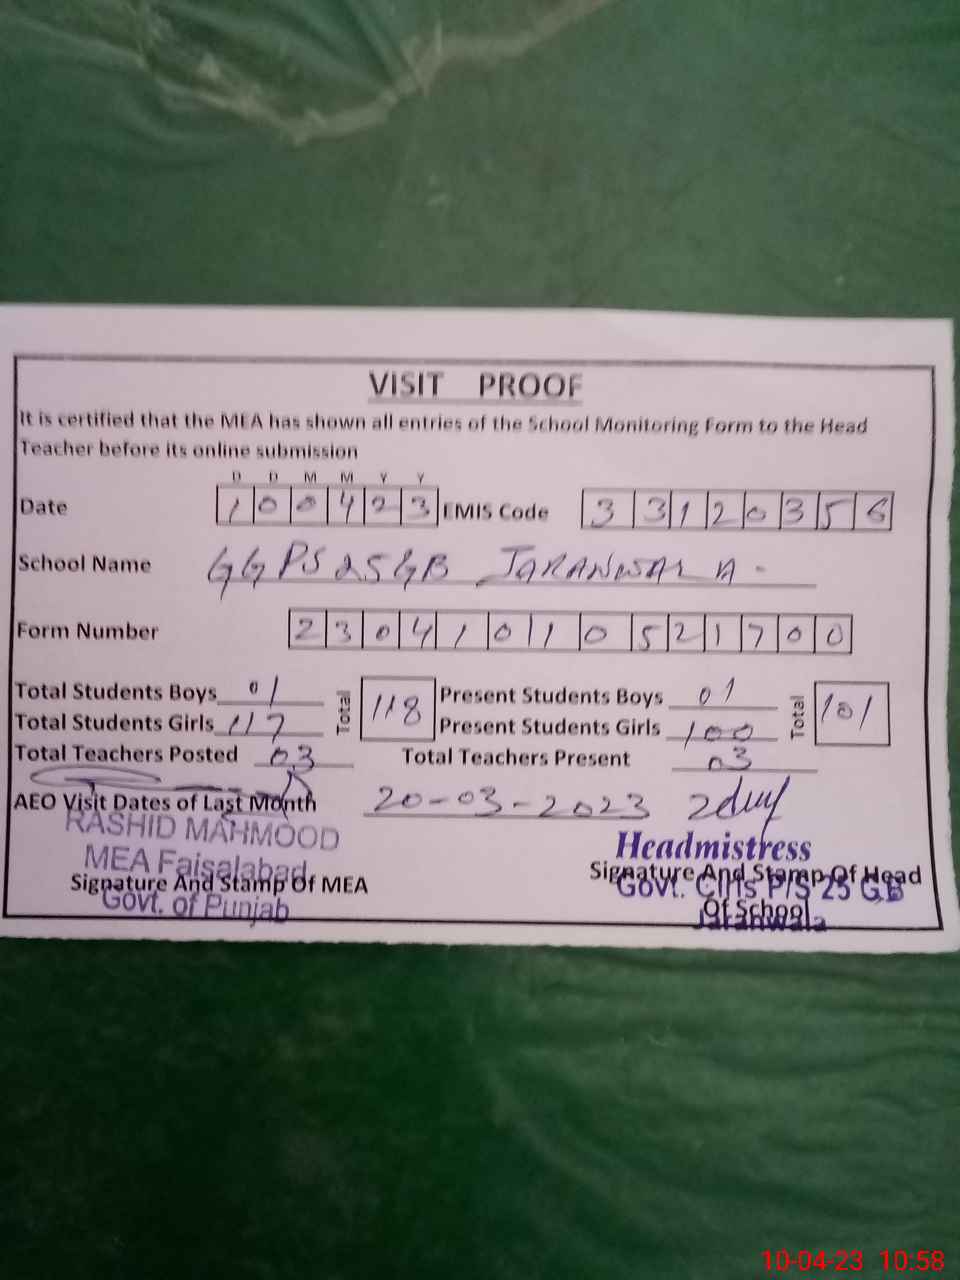 VISIT PROOF
It is certified that the MEA has shown all entries of the School Monitoring Form to the Head
Teacher before its online submission
D D M M Y Y
Date 1 0 0 4 2 3 EMIS Code 3 3 1 2 0 3 5 6
School Name GGPS 25 GB JARANWALA
Form Number 2 3 0 4 1 0 1 0 5 2 1 7 0 0
Total Students Boys 01 Total 118 Present Students Boys 01 Total 101
Total Students Girls 117 Present Students Girls 100
Total Teachers Posted 03 Total Teachers Present 03
AEO Visit Dates of Last Month 20-03-2023
RASHID MAHMOOD
MEA Faisalabad
Signature And Stamp Of MEA
Govt. of Punjab
Headmistress
Signature And Stamp Of Head
Govt. Girls P/S 25 G.B
Of School
Jaranwala
10-04-23 10:58